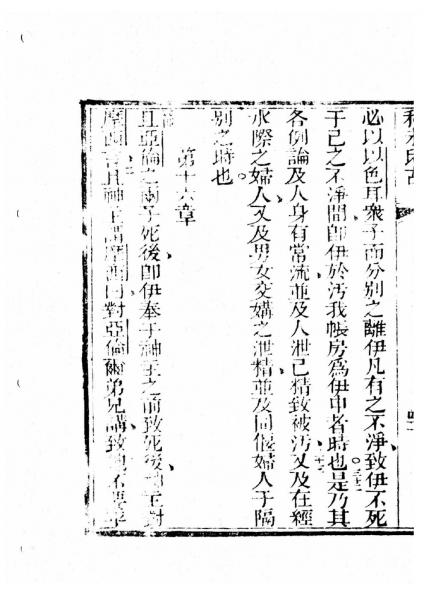 利未氏古
四十
必以以色耳衆子而分別之離伊凡有之不淨致伊不死
于己之不淨間卽伊於汚我帳房爲伊中者時也。三十二是乃其
各例論及人身有常流並及人泄己精致被汚、三十三又及在經
水際之婦人、又及男女交媾之泄精、並及同偃婦人于隔
別之時也。
第十六章
且亞倫之兩子死後、卽伊奉于神主之前致死後、神主對
摩西言、二且神主謂摩西曰對亞倫爾弟兄講、致不要